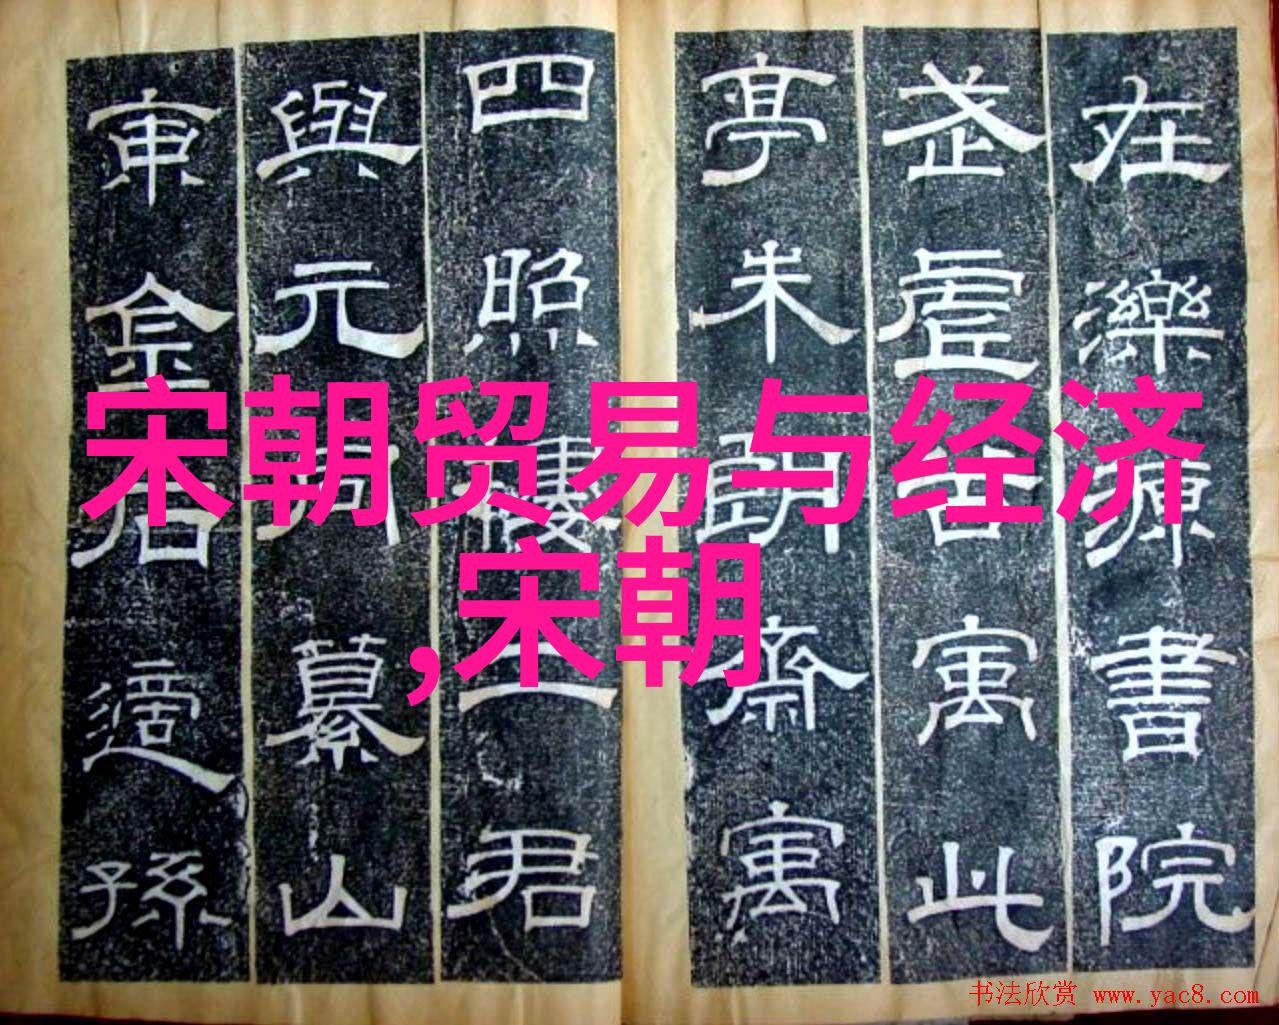 在濼源書院
武虚谷寓此
亭朱朗齋寓
四照樓二君
與元同纂山
東金石適孫
宋朝贸易与经济
,宋朝
书法欣赏 www.yac8.com